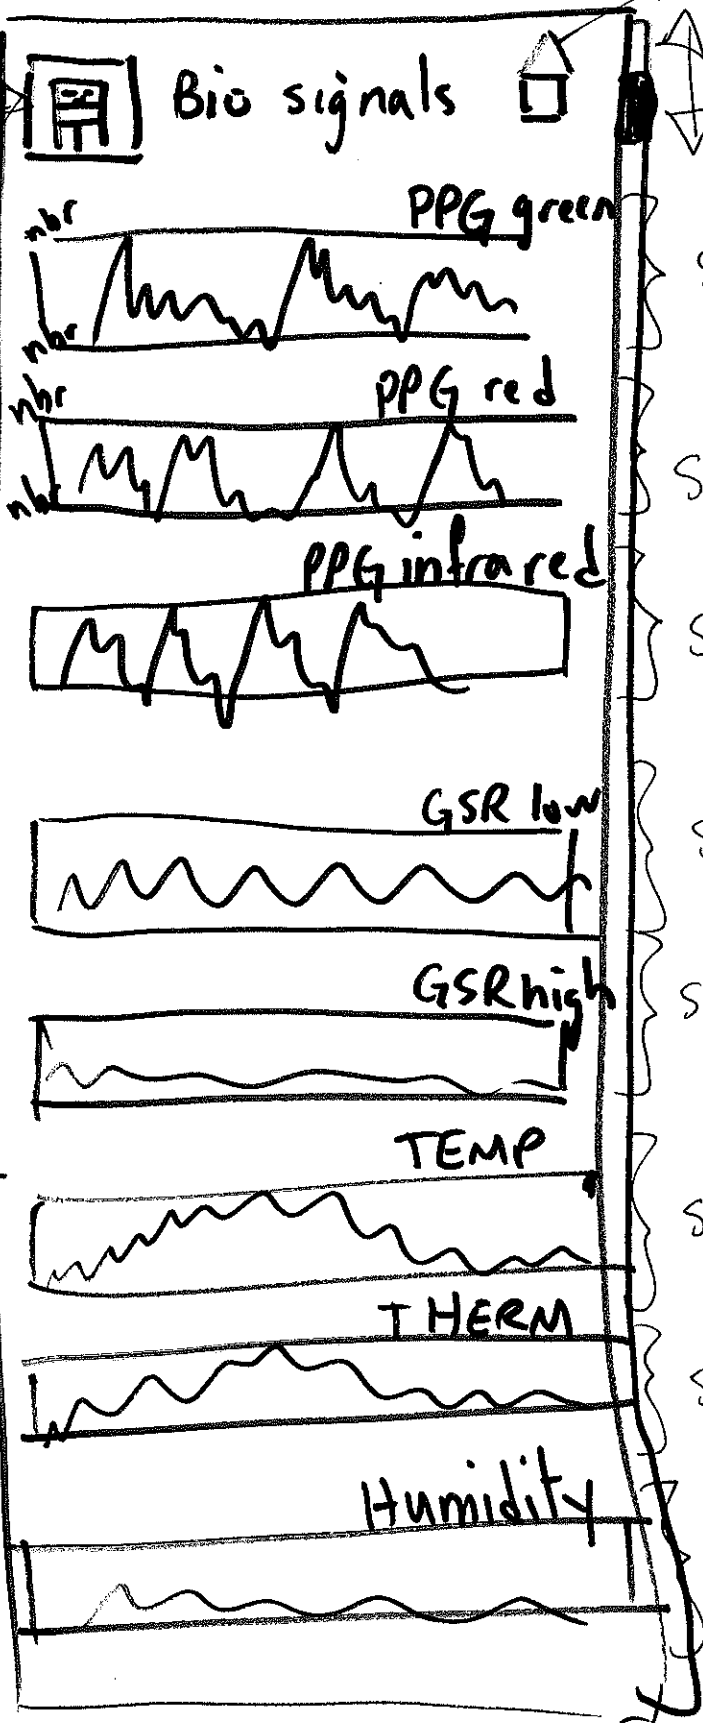 Bio signals
PPG green
nbr
nbr
PPG red
nbr
nbr
PPG infrared
GSR low
GSR high
TEMP
THERM
Humidity
S
S
S
S